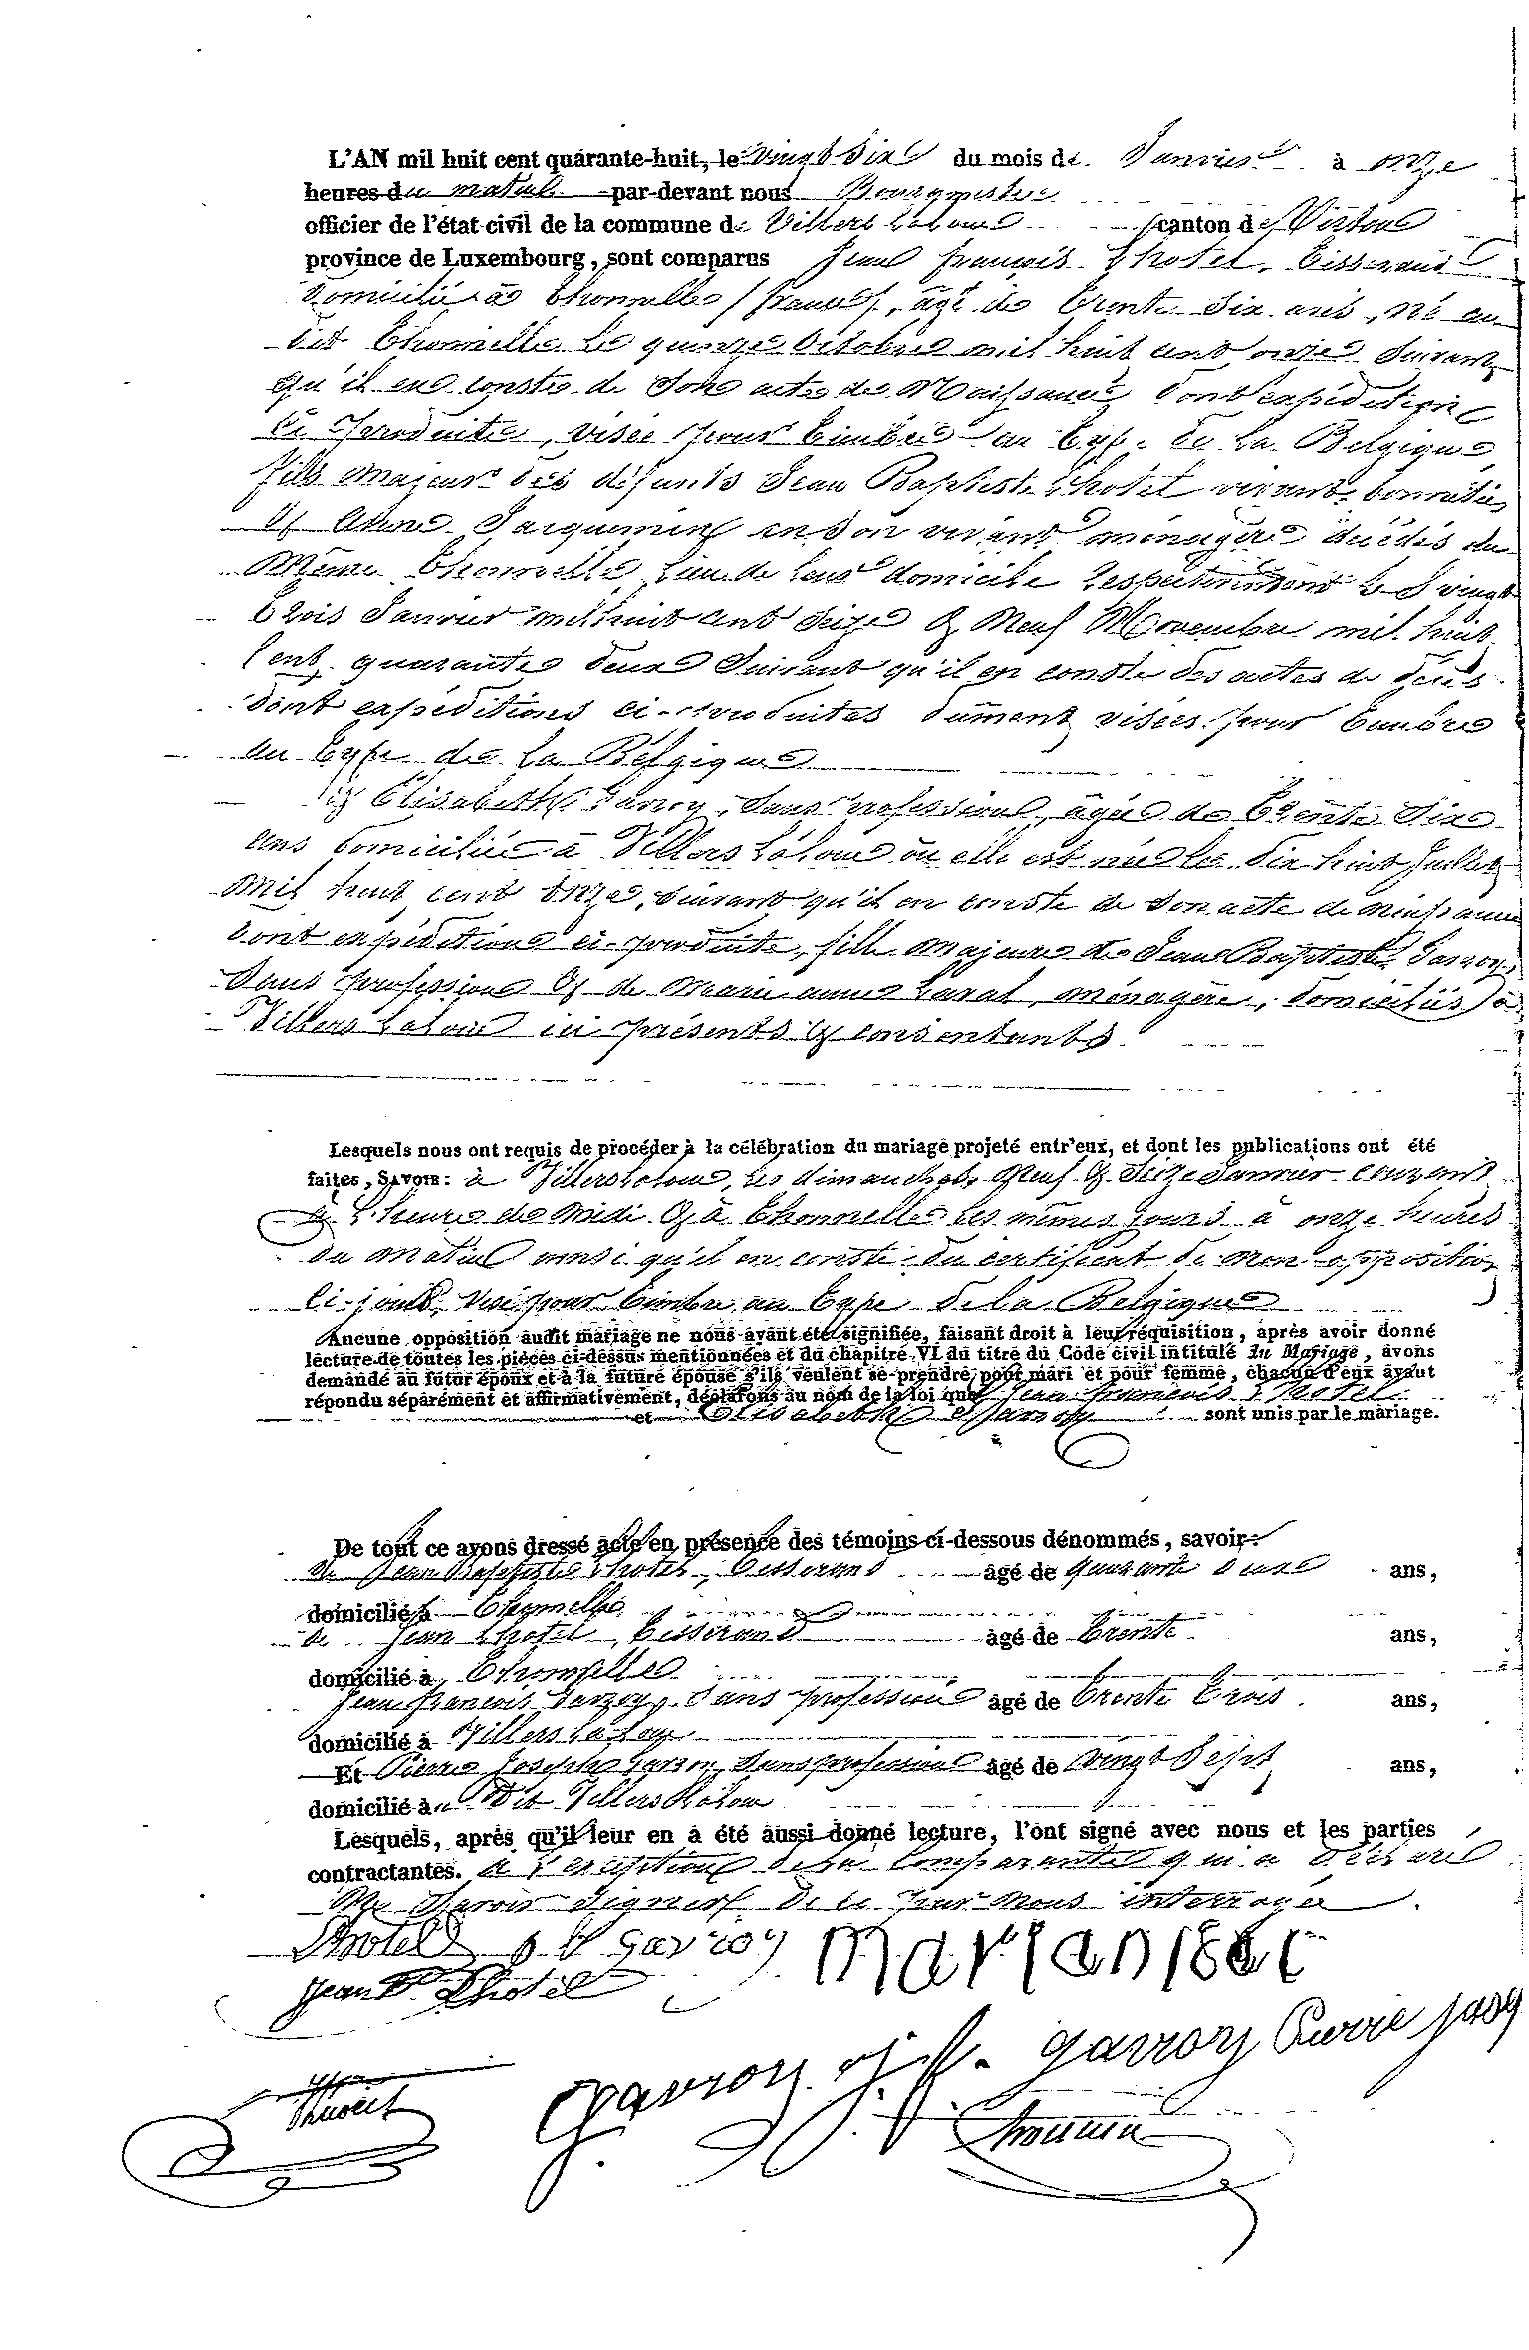 L'AN mil huit cent quarante-huit, le vingt six du mois de Janvier à onze
heures du matin par-devant nous Bourgmestre
officier de l'état civil de la commune de Villers Laloue canton de Virton
province de Luxembourg, sont comparus Jean françois Lhotel, tisserand
domicilié à thonnelle / france /, âgé de trente six ans, né au
dit thonnelle le quinze octobre mil huit cent onze suivant
qu'il en conste de son acte de Naissance dont expédition
ci produite, visée pour timbre au type de la Belgique
fils majeur des défunts Jean Baptiste Lhotel vivant bonnetier
et Anne Jacquemin en son vivant ménagère décédés au
Même thonnelle lieu de leur domicile respectivement le vingt
trois Janvier mil huit cent seize & Neuf Novembre mil huit
cent quarante deux suivant qu'il en conste des actes de décès
dont expéditions ci-produites dûment visées pour timbre
au type de la Belgique
Et Elisabeth Gavroy, sans profession, âgée de trente six
ans domiciliée à Villers Laloue où elle est née le dix huit Juillet
Mil huit cent onze, suivant qu'il en conste de son acte de naissance
dont expédition ci-produite, fille majeure de Jean Baptiste Gavroy
sans profession & de Marie anne Laval, ménagère, domiciliés à
Villers Laloue ici présents & consentants
Lesquels nous ont requis de procéder à la célébration du mariage projeté entr'eux, et dont les publications ont été
faites, SAVOIR: à Villers Laloue, les dimanches Neuf & Seize Janvier courant
à l'heure de Midi & à thonnelle les mêmes jours à onze heures
du matin ainsi qu'il en conste du certificat de non opposition
ci-joint, visé pour timbre au type de la Belgique
Aucune opposition audit mariage ne nous ayant été signifiée, faisant droit à leur réquisition, après avoir donné
lecture de toutes les pièces ci-dessus mentionnées et du chapitre VI du titre du Code civil intitulé du Mariage, avons
demandé au futur époux et à la future épouse s'ils veulent se prendre pour mari et pour femme, chacun d'eux ayant
répondu séparément et affirmativement, déclarons au nom de la loi que Jean francois Lhotel
et Elisabeth Gavroy sont unis par le mariage.
De tout ce avons dressé acte en présence des témoins ci-dessous dénommés, savoir:
de Jean Baptiste Lhotel, tisserand âgé de quarante deux ans,
domicilié à thonnelle
de Jean Lhotel, tisserand âgé de trente ans,
domicilié à Thonnelle
Jean francois Gavroy, sans profession âgé de trente trois ans,
domicilié à Villers Laloue
Et Pierre Joseph Gavroy, sans profession âgé de vingt sept ans,
domicilié au dit Villers Laloue
Lesquels, après qu'il leur en a été aussi donné lecture, l'ont signé avec nous et les parties
contractantes. à l'exception de la comparante qui a déclaré
Ne savoir signer de ce par nous interrogée
Lhotel J B Gavroy
Jean Bte Lhotel
Gavroy J. f. gavroy Pierre